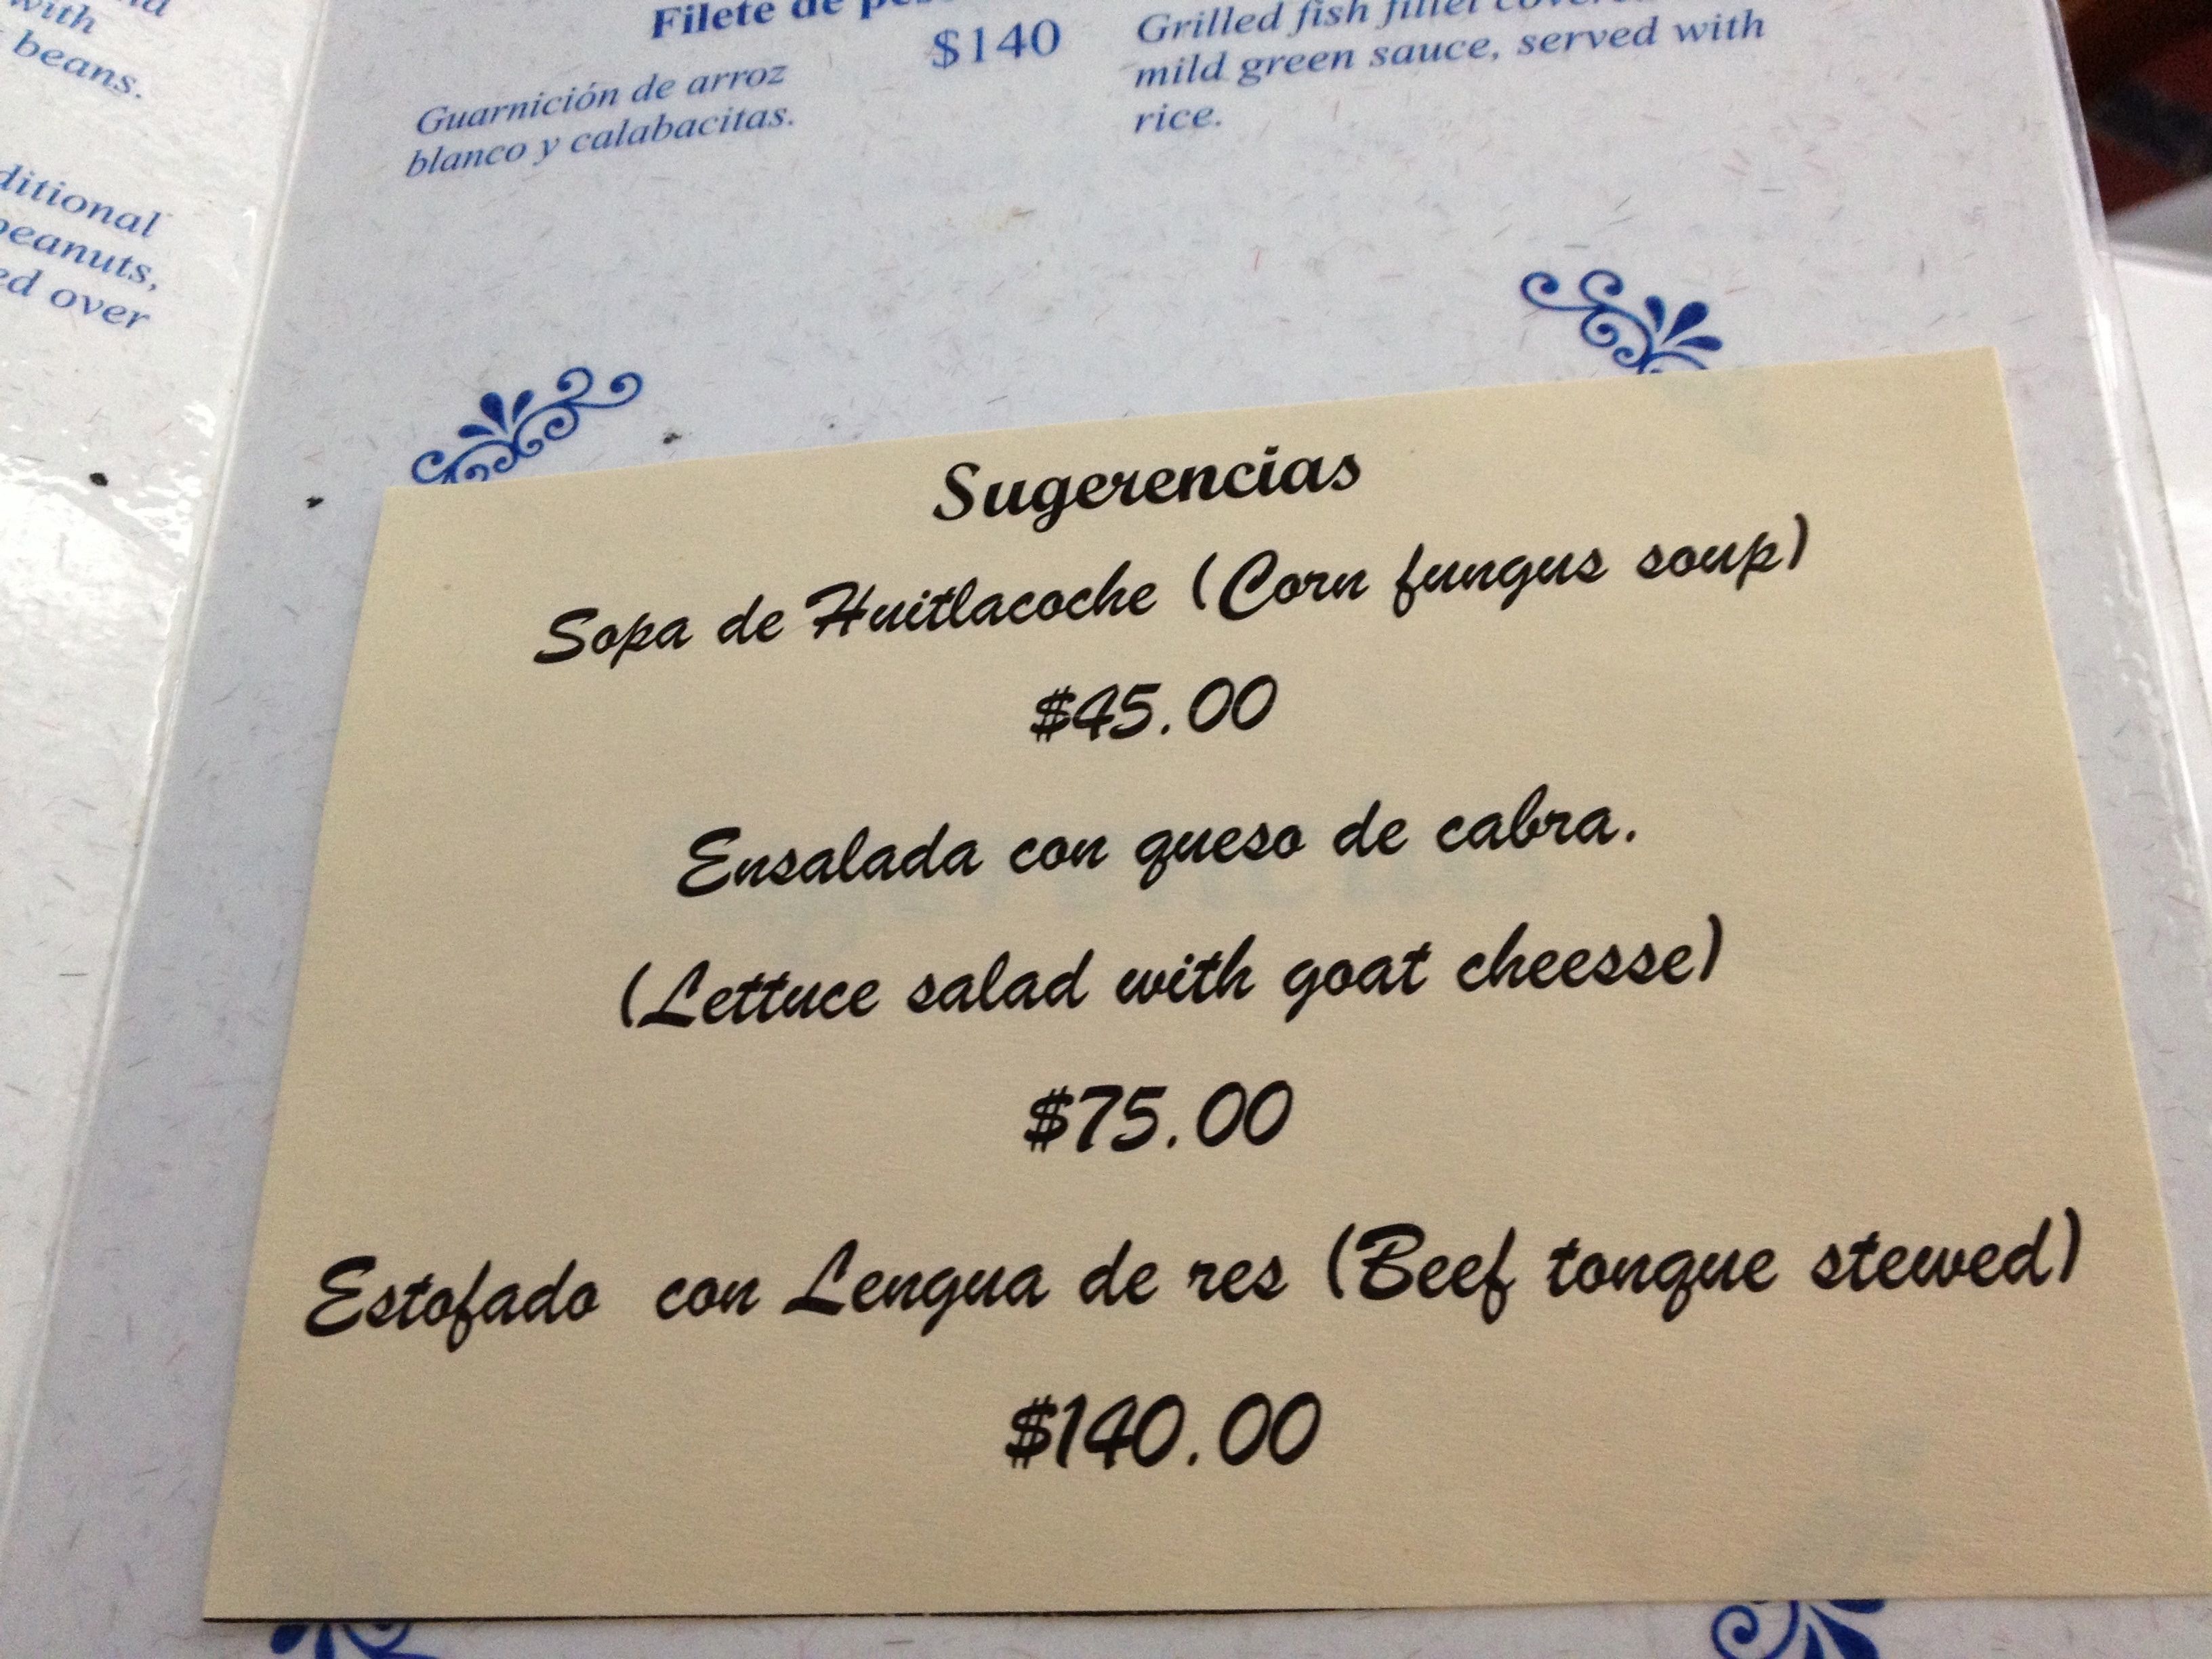 with
beans.
ditional
peanuts,
ed over
Filete de
$140
Guarnición de arroz
blanco y calabacitas.
Grilled fish fillet
mild green sauce, served with
rice.
Sugerencias
Sopa de Huitlacoche (Corn fungus soup)
$45.00
Ensalada con queso de cabra.
(Lettuce salad with goat cheesse)
$75.00
Estofado con Lengua de res (Beef tongue stewed)
$140.00